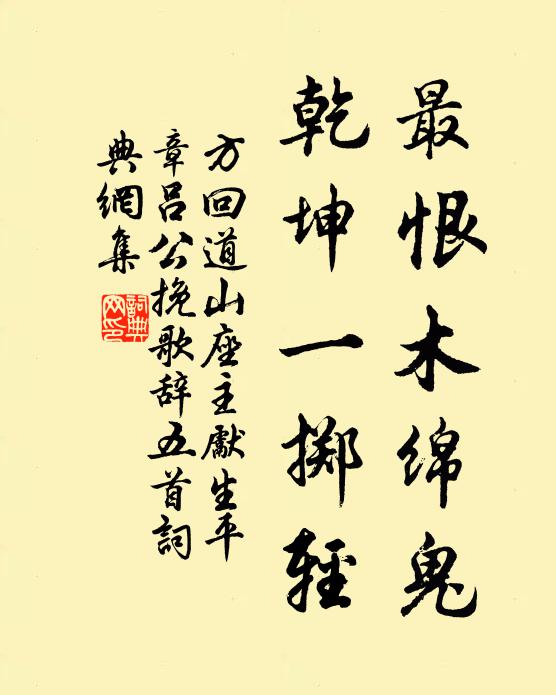 最恨木绵鬼
乾坤一掷轻
方回道山座主献生平
章吕公挽歌辞五首詞
典網集
詞典網印